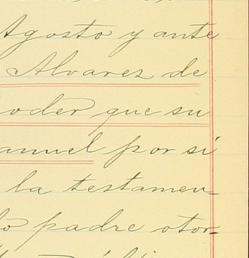 Agosto y ante
Alvarez de
poder que su
anuel por si
la testamen-
do padre otor-